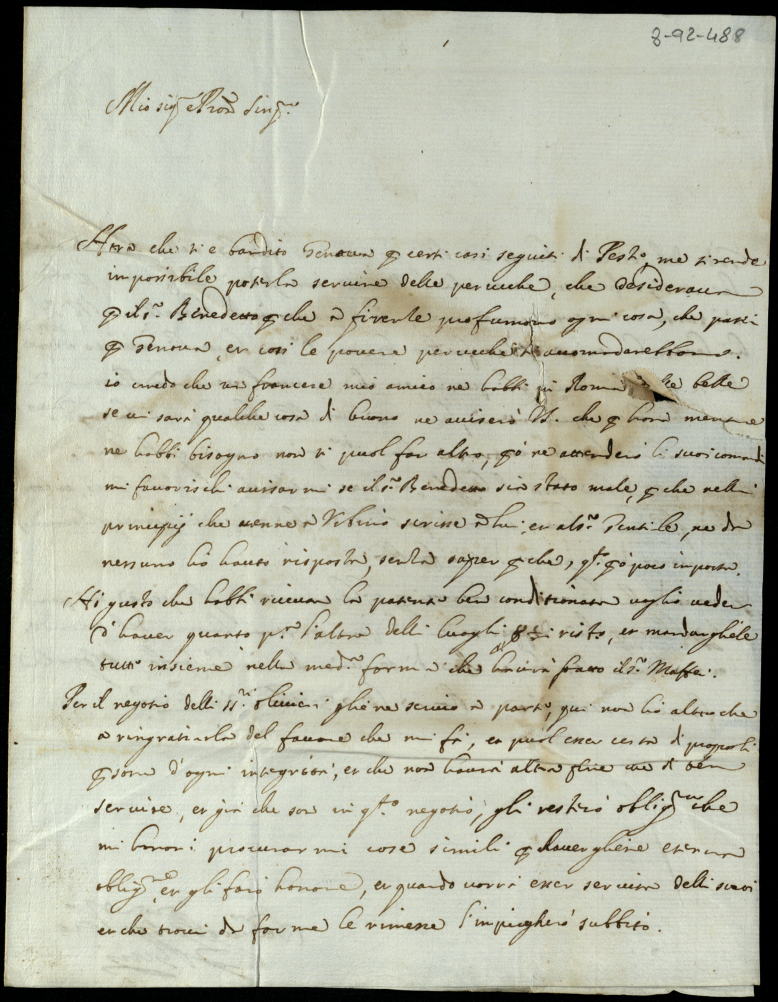 3-92-488
Mio sig.re e Pron Sing.mo
Hora che si è bandito Genova p certi casi seguiti di Peste, me si rende
impossibile poterla servire delle peruche, che desiderava
p il s.r Benedetto p che a firenze profumono ogni cosa, che passi
p Genova, et così le povere peruche si accomodarebbono.
io credo che un francese mio amico ne habbi in Roma belle
se vi sarà qualche cosa di buono ne aviserò VS. che p hora mentre
ne habbi bisogno non si puol far altro, p ò ne attenderò li suoi comandi
mi favorischi avisarmi se il s.r Benedetto sia stato male, p che nelli
principij che venne a Urbino scrisse a lui, et al s.r Gentile, ne da
nessuno hò hauto risposta, senza saper p che, q.to p ò poco importa.
Hò gusto che habbi ricevuta la patente ben conditionata voglio veder
d'haver quanto p.a l'altra delli luoghi risto, et mandarghele
tutto insieme nella med.a forma che haverà fatto il s.r Maffei.
Per il negotio delli ss.ri Olivieri glie ne scrivo a parte, qui non hò altro che
a ringratiarla del favore che mi fà, et puol esser certa di proposti
p sone d'ogni integrità, et che non haverà altro fine che di ben
servire, et già che son in q.to negotio, gli resterò oblig.mo che
mi honori procurarmi cose simili p haverghene eterna
oblig.ne, et gli farò honore, et quando vorrà esser servita delli suoi
et che trovi da farme le rimesse l'impiegherò subbito.